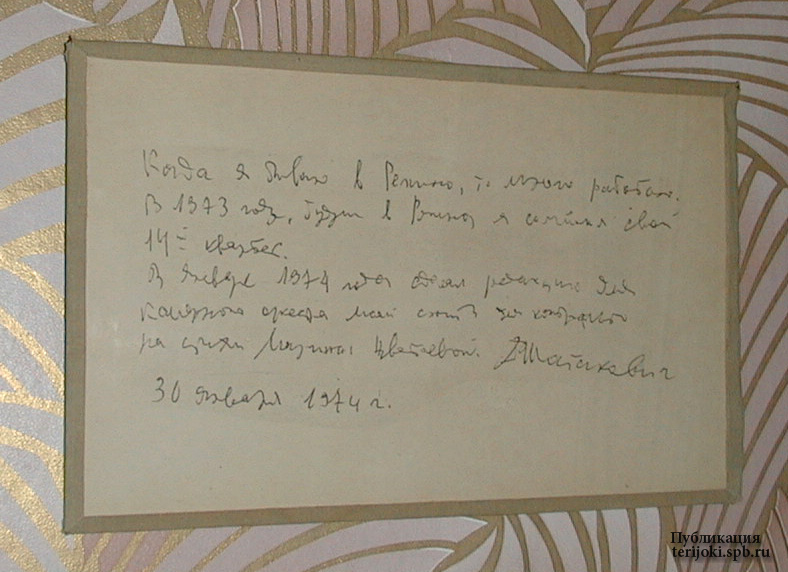 Когда я бываю в Репино, то много работаю.
В 1973 году, будучи в Репино я сочинил свой
14-й квартет.
В январе 1974 года сделал редакцию для
камерного оркестра моей сюиты для контральто
на стихи Марины Цветаевой. ДШостакович
30 января 1974 г.
Публикация
terijoki.spb.ru